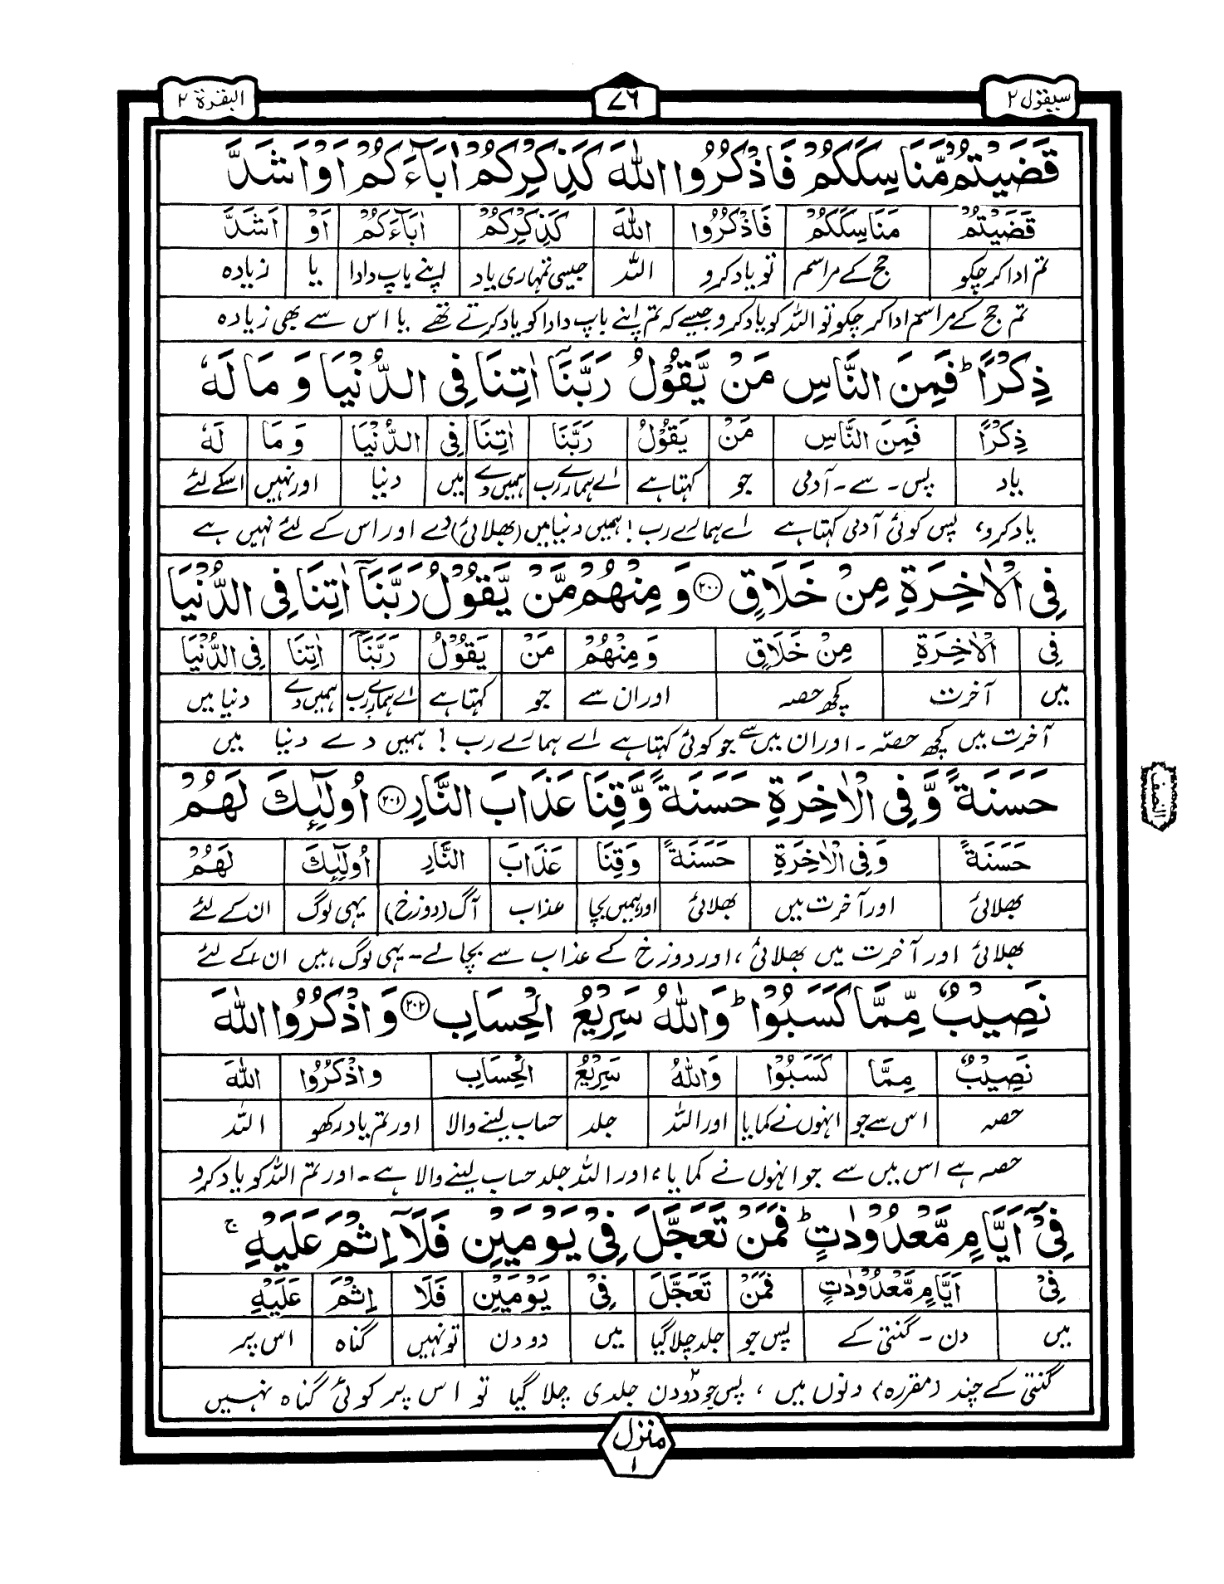 سیقول ۲
۷۶
البقرة ۲
قَضَیۡتُمۡ مَّنَاسِکَکُمۡ فَاذۡکُرُوا اللّٰہَ کَذِکۡرِکُمۡ اٰبَآءَکُمۡ اَوۡ اَشَدَّ
قَضَیۡتُمۡ مَنَاسِکَکُمۡ فَاذۡکُرُوا اللّٰہَ کَذِکۡرِکُمۡ اٰبَآءَکُمۡ اَوۡ اَشَدَّ
تم ادا کر چکو حج کے مراسم تو یاد کرو اللہ جیسی تمہاری یاد اپنے باپ دادا یا زیادہ
تم حج کے مراسم ادا کر چکو تو اللہ کو یاد کرو جیسے کہ تم اپنے باپ دادا کو یاد کرتے تھے یا اس سے بھی زیادہ
ذِکۡرًا ؕ فَمِنَ النَّاسِ مَنۡ یَّقُوۡلُ رَبَّنَاۤ اٰتِنَا فِی الدُّنۡیَا وَ مَا لَہٗ
ذِکۡرًا فَمِنَ النَّاسِ مَنۡ یَقُوۡلُ رَبَّنَا اٰتِنَا فِی الدُّنۡیَا وَ مَا لَہٗ
یاد پس۔ سے۔ آدمی جو کہتا ہے اے ہمارے رب ہمیں دے میں دنیا اور نہیں اسکے لئے
یاد کرو، پس کوئی آدمی کہتا ہے اے ہمارے رب! ہمیں دنیا میں (بھلائی) دے اور اس کے لئے نہیں ہے
فِی الۡاٰخِرَۃِ مِنۡ خَلَاقٍ ﴿۲۰۰﴾ وَ مِنۡہُمۡ مَّنۡ یَّقُوۡلُ رَبَّنَاۤ اٰتِنَا فِی الدُّنۡیَا
فِی الۡاٰخِرَۃِ مِنۡ خَلَاقٍ وَ مِنۡہُمۡ مَنۡ یَقُوۡلُ رَبَّنَاۤ اٰتِنَا فِی الدُّنۡیَا
میں آخرت کچھ حصہ اور ان سے جو کہتا ہے اے ہمارے رب ہمیں دے دنیا میں
آخرت میں کچھ حصّہ۔ اور ان میں سے جو کوئی کہتا ہے اے ہمارے رب! ہمیں دے دنیا میں
حَسَنَۃً وَّ فِی الۡاٰخِرَۃِ حَسَنَۃً وَّ قِنَا عَذَابَ النَّارِ ﴿۲۰۱﴾ اُولٰٓئِکَ لَہُمۡ
حَسَنَۃً وَ فِی الۡاٰخِرَۃِ حَسَنَۃً وَ قِنَا عَذَابَ النَّارِ اُولٰٓئِکَ لَہُمۡ
بھلائی اور آخرت میں بھلائی اور ہمیں بچا عذاب آگ (دوزخ) یہی لوگ ان کے لئے
بھلائی اور آخرت میں بھلائی، اور دوزخ کے عذاب سے بچا لے۔ یہی لوگ ہیں ان کے لئے
نَصِیۡبٌ مِّمَّا کَسَبُوۡا ؕ وَ اللّٰہُ سَرِیۡعُ الۡحِسَابِ ﴿۲۰۲﴾ وَ اذۡکُرُوا اللّٰہَ
نَصِیۡبٌ مِمَّا کَسَبُوۡا وَ اللّٰہُ سَرِیۡعُ الۡحِسَابِ وَ اذۡکُرُوا اللّٰہَ
حصہ اس سے جو انہوں نے کمایا اور اللہ جلد حساب لینے والا اور تم یاد رکھو اللہ
حصہ ہے اس میں سے جو انہوں نے کمایا، اور اللہ جلد حساب لینے والا ہے۔ اور تم اللہ کو یاد کرو
فِیۡۤ اَیَّامٍ مَّعۡدُوۡدٰتٍ ؕ فَمَنۡ تَعَجَّلَ فِیۡ یَوۡمَیۡنِ فَلَاۤ اِثۡمَ عَلَیۡہِ ۚ
فِیۡ اَیَّامٍ مَّعۡدُوۡدٰتٍ فَمَنۡ تَعَجَّلَ فِیۡ یَوۡمَیۡنِ فَلَا اِثۡمَ عَلَیۡہِ
میں دن۔ گنتی کے پس جو جلد چلا گیا میں دو دن تو نہیں گناہ اس پر
گنتی کے چند (مقررہ) دنوں میں، پس جو دو دن جلدی چلا گیا تو اس پر کوئی گناہ نہیں
النصف
منزل ۱